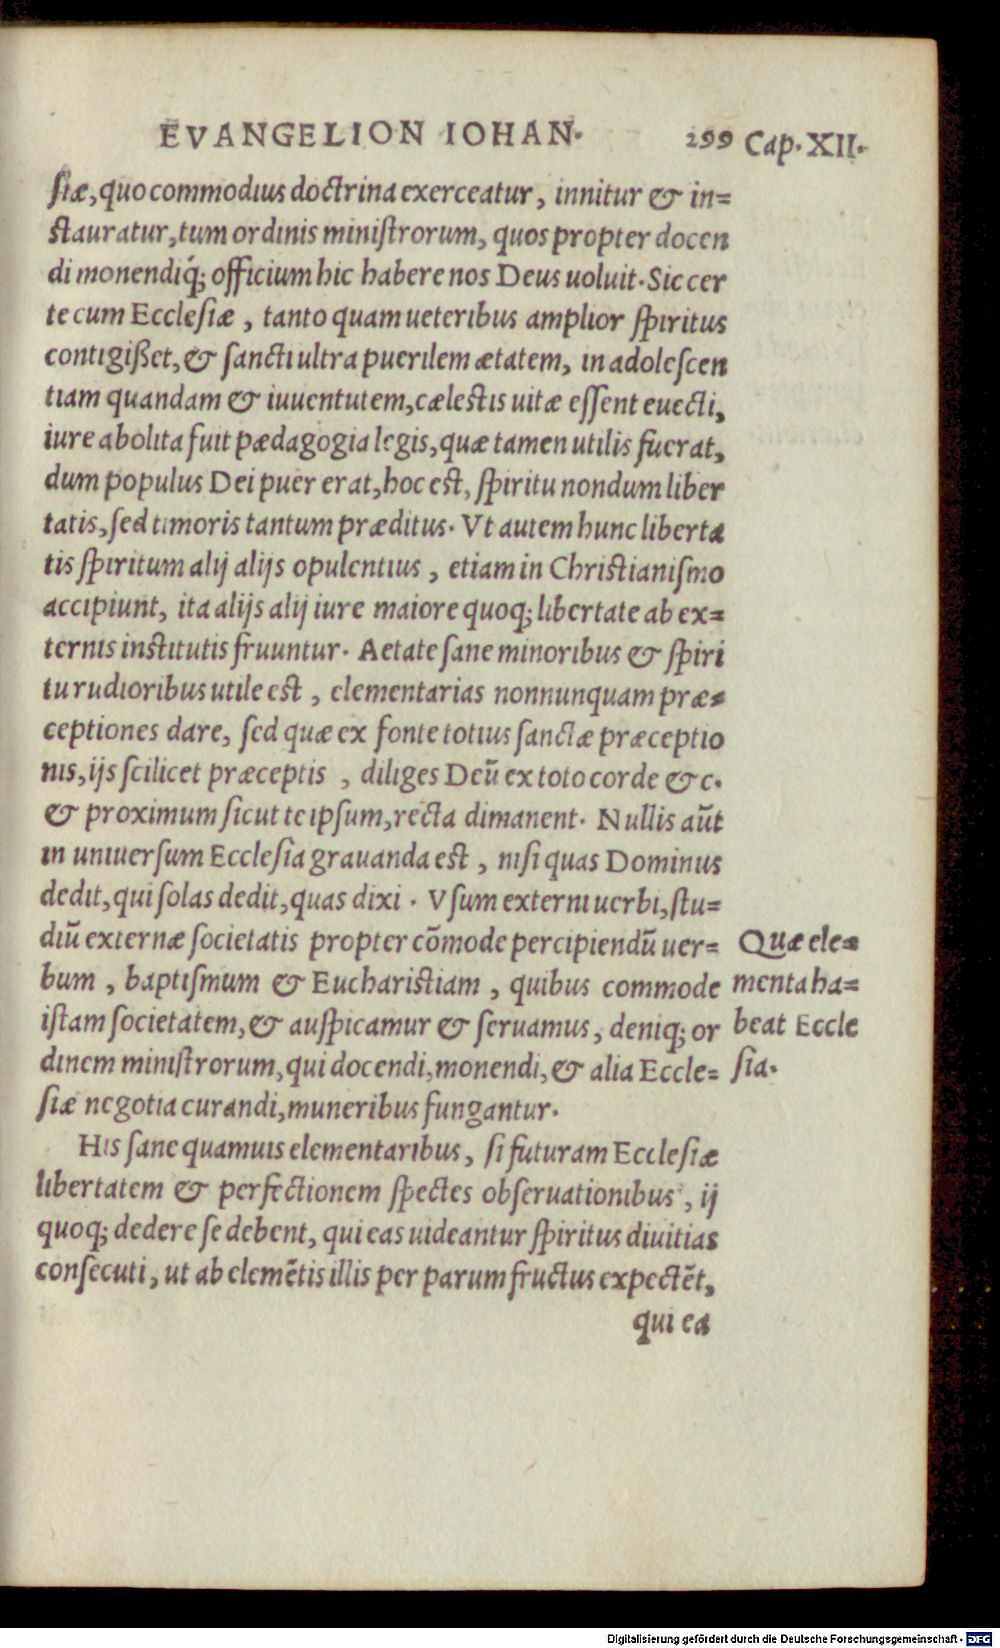 EVANGELION IOHAN. 299 Cap. XII.
siæ, quo commodius doctrina exerceatur, innitur & in=
stauratur, tum ordinis ministrorum, quos propter docen
di monendiq́; officium hic habere nos Deus uoluit. Sic cer
te cum Ecclesiæ, tanto quam ueteribus amplior spiritus
contigißet, & sancti ultra puerilem ætatem, in adolescen
tiam quandam & iuuentutem, cælestis uitæ essent euecti,
iure abolita fuit pædagogia legis, quæ tamen utilis fuerat,
dum populus Dei puer erat, hoc est, spiritu nondum liber
tatis, sed timoris tantum præditus. Vt autem hunc liberta
tis spiritum alij alijs opulentius, etiam in Christianismo
accipiunt, ita alijs alij iure maiore quoq; libertate ab ex=
ternis institutis fruuntur. Aetate sane minoribus & spiri
tu rudioribus utile est, elementarias nonnunquam præ=
ceptiones dare, sed quæ ex fonte totius sanctæ præceptio
nis, ijs scilicet præceptis, diliges Deū ex toto corde & c.
& proximum sicut te ipsum, recta dimanent. Nullis aūt
in uniuersum Ecclesia grauanda est, nisi quas Dominus
dedit, qui solas dedit, quas dixi. Vsum externi uerbi, stu=
diū externæ societatis propter cōmode percipiendū uer=
bum, baptismum & Eucharistiam, quibus commode
istam societatem, & auspicamur & seruamus, deniq; or
dinem ministrorum, qui docendi, monendi, & alia Eccle=
siæ negotia curandi, muneribus fungantur.
Quæ ele=
menta ha=
beat Eccle
sia.
His sane quamuis elementaribus, si futuram Ecclesiæ
libertatem & perfectionem spectes obseruationibus, ij
quoq; dedere se debent, qui eas uideantur spiritus diuitias
consecuti, ut ab elemētis illis per parum fructus expectēt,
qui ea
Digitalisierung gefördert durch die Deutsche Forschungsgemeinschaft - DFG